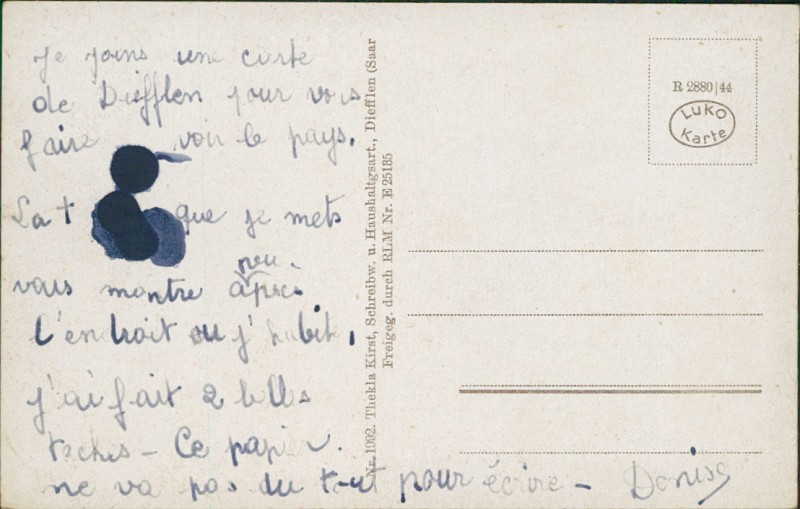 Je joins une carte
de Diefflen pour vous
faire voir le pays.
La + que je mets
vous montre à peu près
l'endroit ou j'habite,
j'ai fait 2 belles
taches - Ce papier
ne va pas du tout pour écrire - Denise
Nr. 1992. Thekla Kirst, Schreibw. u. Haushaltgsart., Diefflen (Saar
Freigeg. durch RLM Nr. E 25185
R 2880|44
LUKO
Karte